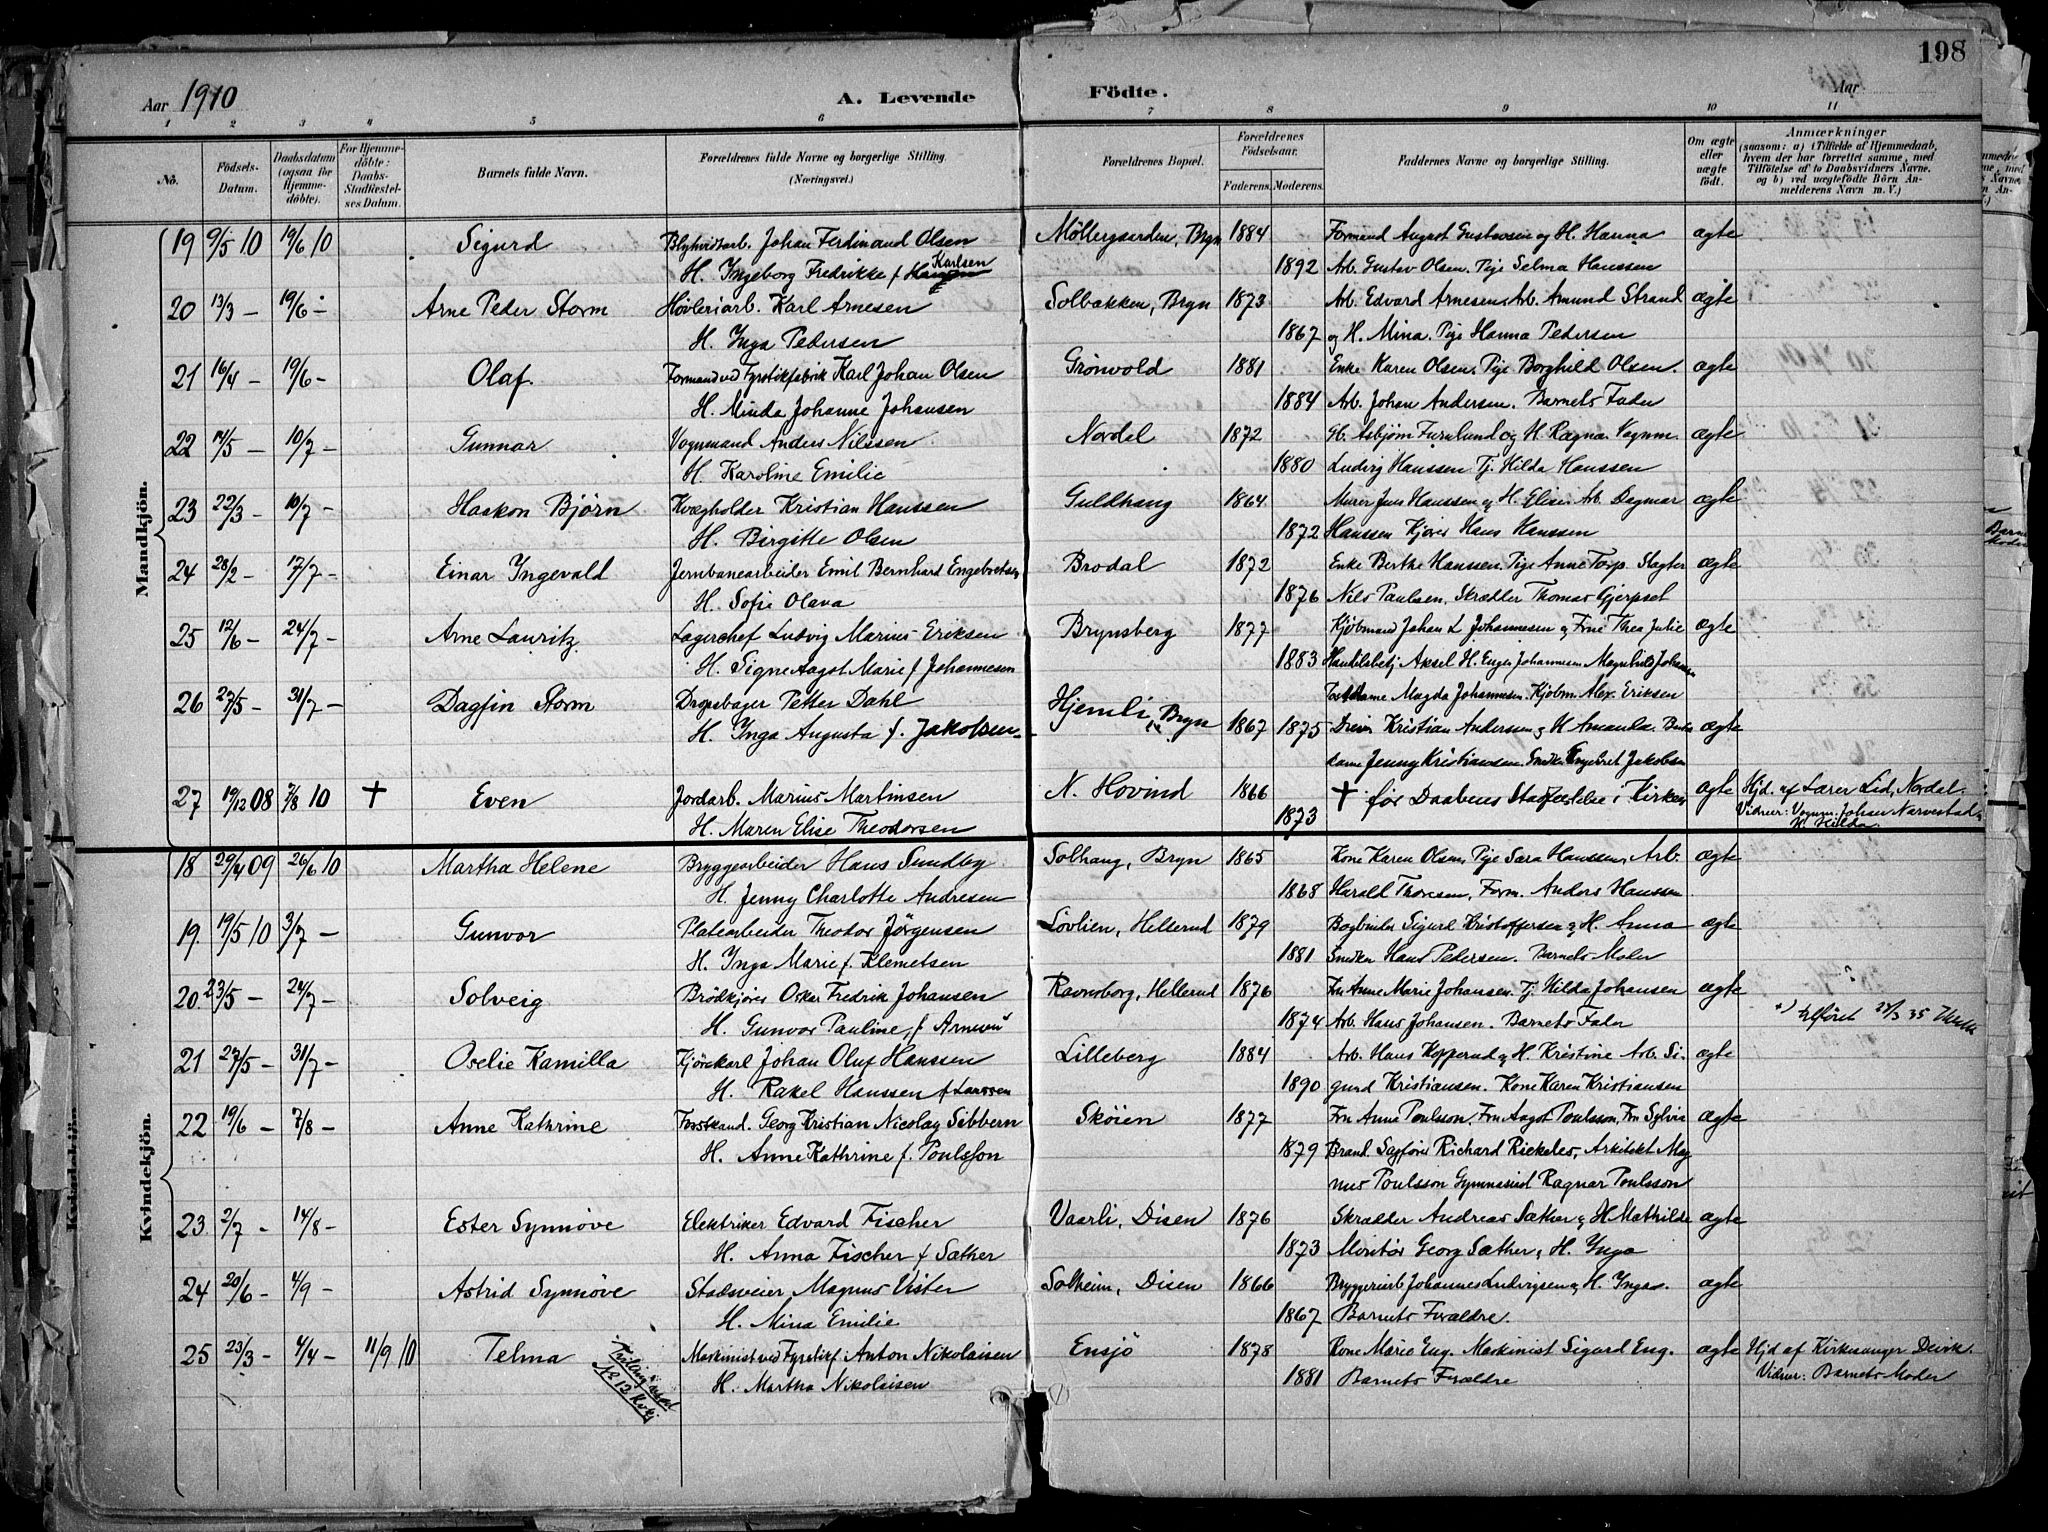 198
Aar 1910
A. Levende Födte.
Aar
1 2 3 4 5 6 7 8 9 10 11
No.
Födsels-Datum.
Daabsdatum (ogsaa for Hjemme-döbte).
For Hjemme-döbte: Daabs-Stadfæstel-ses Datum.
Barnets fulde Navn.
Forældrenes fulde Navne og borgerlige Stilling. (Næringsvei.)
Forældrenes Bopæl.
Forældrenes Födselsaar.
Faderens. Moderens.
Faddernes Navne og borgerlige Stilling.
Om ægte eller uægte födt.
Anmærkninger
(saasom: a) i Tilfælde af Hjemmedaab, hvem der har forrettet samme, med Tilföielse af to Daabsvidners Navne. og b) ved uægtefödte Börn An-melderens Navn m. V.)
Mandkjön.
19 9/5 10 19/6 10 Sigurd Blyhvidtarb. Johan Ferdinand Olsen Möllergaarden, Bryn 1884 Formand August Gustavsen og H. Hanna ægte
H. Ingeborg Fredrikke f. Karlsen 1892 Arb. Gustav Olsen. Pige Selma Hanssen
20 13/3 — 19/6 — Arne Peder Storm Høvleriarb. Karl Arnesen Solbakken, Bryn 1873 Arb. Edvard Arnesen, Arb. Amund Strand ægte
H. Inga Pedersen 1867 og H. Mina. Pige Hanna Pedersen
21 16/4 — 19/6 — Olaf. Formand ved Fyrstikfabrik Karl Johan Olsen Grönvold 1881 Enke Karen Olsen, Pige Borghild Olsen. ægte
H. Minda Johanne Johansen 1884 Arb. Johan Andersen. Barnets Fader
22 14/5 — 10/7 — Gunnar Vognmand Anders Nilssen Nordal 1872 Gb. Asbjørn Furulund og H. Ragna. Vognm. ægte
H. Karoline Emilie 1880 Ludvig Hanssen Tj. Hilda Hanssen
23 22/3 — 10/7 — Haakon Björn Kvægholder Kristian Hanssen Guldhaug 1864 Murer Jens Hanssen og H. Elise. Arb. Dagmar ægte
H. Birgitte Olsen 1872 Hanssen Kjører Hans Hanssen
24 28/2 — 17/7 — Einar Ingevald Jernbanearbeider Emil Bernhard Engebretsen Brodal 1872 Enke Berthe Hanssen. Pige Anne Torp. Slagter ægte
H. Sofie Olava 1876 Nils Paulsen. Skrædder Thomas Gjerpset
25 12/6 — 24/7 — Arne Lauritz Lagerchef Ludvig Marius Eriksen Brynsberg 1877 Kjøbmand Johan L. Johannesen og Frue Thea Julie ægte
H. Signe Aagot Marie f. Johannesen 1883 Handelsbetj. Aksel H. Enger Johannesen
26 27/5 — 31/7 — Dagfin Storm Dropsbager Petter Dahl Hjemli, Bryn 1867 1875 Magda Johannesen. Kjøbm. Alex. Eriksen
H. Inga Augusta f. Jakobsen Kristian Andersen og H Amanda ægte
Jenny Kristiansen. Jakobsen
27 19/12 08 7/8 10 † Even Jordarb. Marius Martinsen N. Hovind 1866 † før Daabens Stadfæstelse i Kirken ægte Hjd. af Lærer Lid, Nordal.
H. Maren Elise Theodorsen 1873 Vidner: Vognm. Johan Narvestad
H. Hilda.
Kvindekjön.
18 29/4 09 26/6 10 Martha Helene Bryggearbeider Hans Sundby Solhaug, Bryn 1865 Kone Karen Olsen, Pige Sara Hanssen, Arb. ægte
H. Jenny Charlotte Andresen 1868 Harald Thoresen, Form. Anders Hanssen
19. 19/5 10 3/7 — Gunvor Platearbeider Theodor Jörgensen Lövlien, Hellerud 1879 Bogbinder Sigurd Kristoffersen og H. Anna ægte
H. Inga Marie f. Klemetsen 1881 Snedker Hans Pedersen. Barnets Moder
20. 23/5 — 24/7 — Solveig Brödkjörer Oskar Fredrik Johansen Ravnsborg, Hellerud 1876 Fru Anne Marie Johansen. Tj. Hilda Johansen ægte
H. Gunvor Pauline f. 1874 Arb. Hans Johansen. Barnets Fader
21 27/5 — 31/7 — Oselie Kamilla Kjörekarl Johan Oluf Hanssen Lilleberg 1884 Arb. Hans Kopperud og H. Kristine Arb. Si- ægte
H. Rakel Hanssen f. Larssen 1890 gurd Kristiansen. Kone Karen Kristiansen
22 19/6 — 7/8 — Anne Kathrine Forstkand. Georg Kristian Nicolay Sibbern Sköien 1877 Fru Anne Poulsson, Fru Aagot Poulsson, Fru Sylvia ægte
H. Anne Kathrine f. Poulsson 1879 Brand. Sagfører Richard Rieckeles, Arkitekt Mag
nus Poulsson Gymnasiast Ragnar Poulsson
23. 2/7 — 14/8 — Ester Synnöve Elektriker Edvard Fischer Vaarli, Disen 1876 Skrædder Andreas Sæther og H Mathilde ægte
H. Anna Fischer f Sæther 1873 Montör Georg Sæther og H. Inga
24 20/6 — 4/9 — Astrid Synnöve Stadsveier Magnus Vister Solheim, Disen 1866 Bryggeriarb Johannes Ludvigsen og H. Inga. ægte
H. Mina Emilie 1867 Barnets Forældre.
25 23/3 — 4/4 — 11/9 10 Telma Maskinist ved Fyrstikf. Anton Nikolaisen Ensjö 1878 Kone Marie Eng. Maskinist Sigurd Eng. ægte Hjd af Kirkesanger
Tvilling med No 12 Mkj H. Martha Nikolaisen 1881 Barnets Forældre Vidner: Barnets Moder